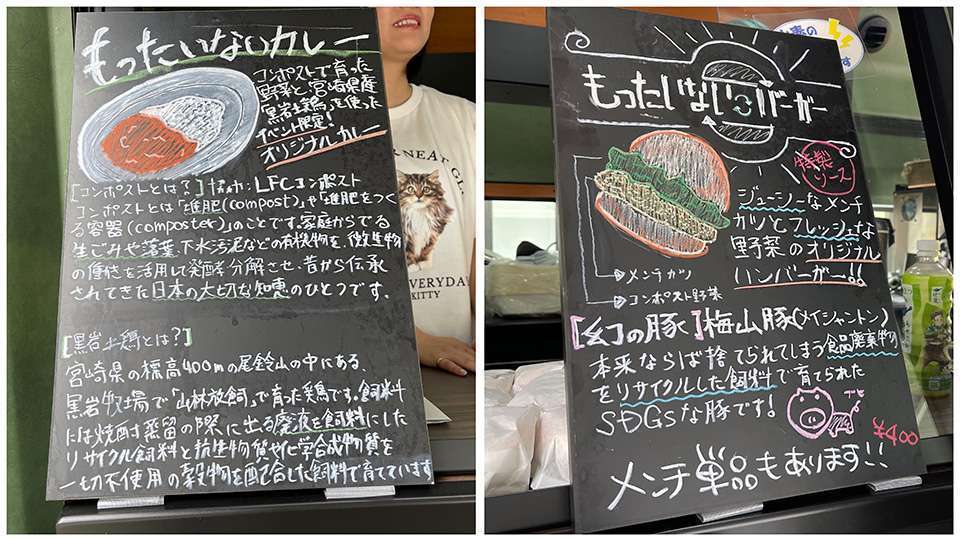 もったいないカレー
コンポストで育った
野菜と宮崎県産
「黒岩土鶏」を使った
イベント限定!
オリジナルカレー
[コンポストとは?] 協力:LFCコンポスト
コンポストとは「堆肥(compost)」や「堆肥をつく
る容器(composter)」のことです。家庭からでる
生ごみや落葉、下水汚泥などの有機物を、微生物
の働きを活用して発酵・分解させ、昔から伝承
されてきた日本の大切な知恵のひとつです。
[黒岩土鶏とは?]
宮崎県の標高400mの尾鈴山の中にある、
黒岩牧場で「山林放飼」で育った鶏です。飼飼料
には焼酎蒸留の際に出る廃液を飼料にした
リサイクル飼料と抗生物質や化学合成物質を
一切不使用の穀物を配合した飼料で育てています
NEAT GI
EVERYDAY
KITTY
もったいないバーガー
特製
ソース
ジューシーなメンチ
カツとフレッシュな
野菜のオリジナル
ハンバーガー!!
メンチカツ
コンポスト野菜
[幻の豚]梅山豚(メイシャントン)
本来ならば捨てられてしまう食品廃棄物
をリサイクルした飼料で育てられた
SDGsな豚です!
メンチ単品もあります!!